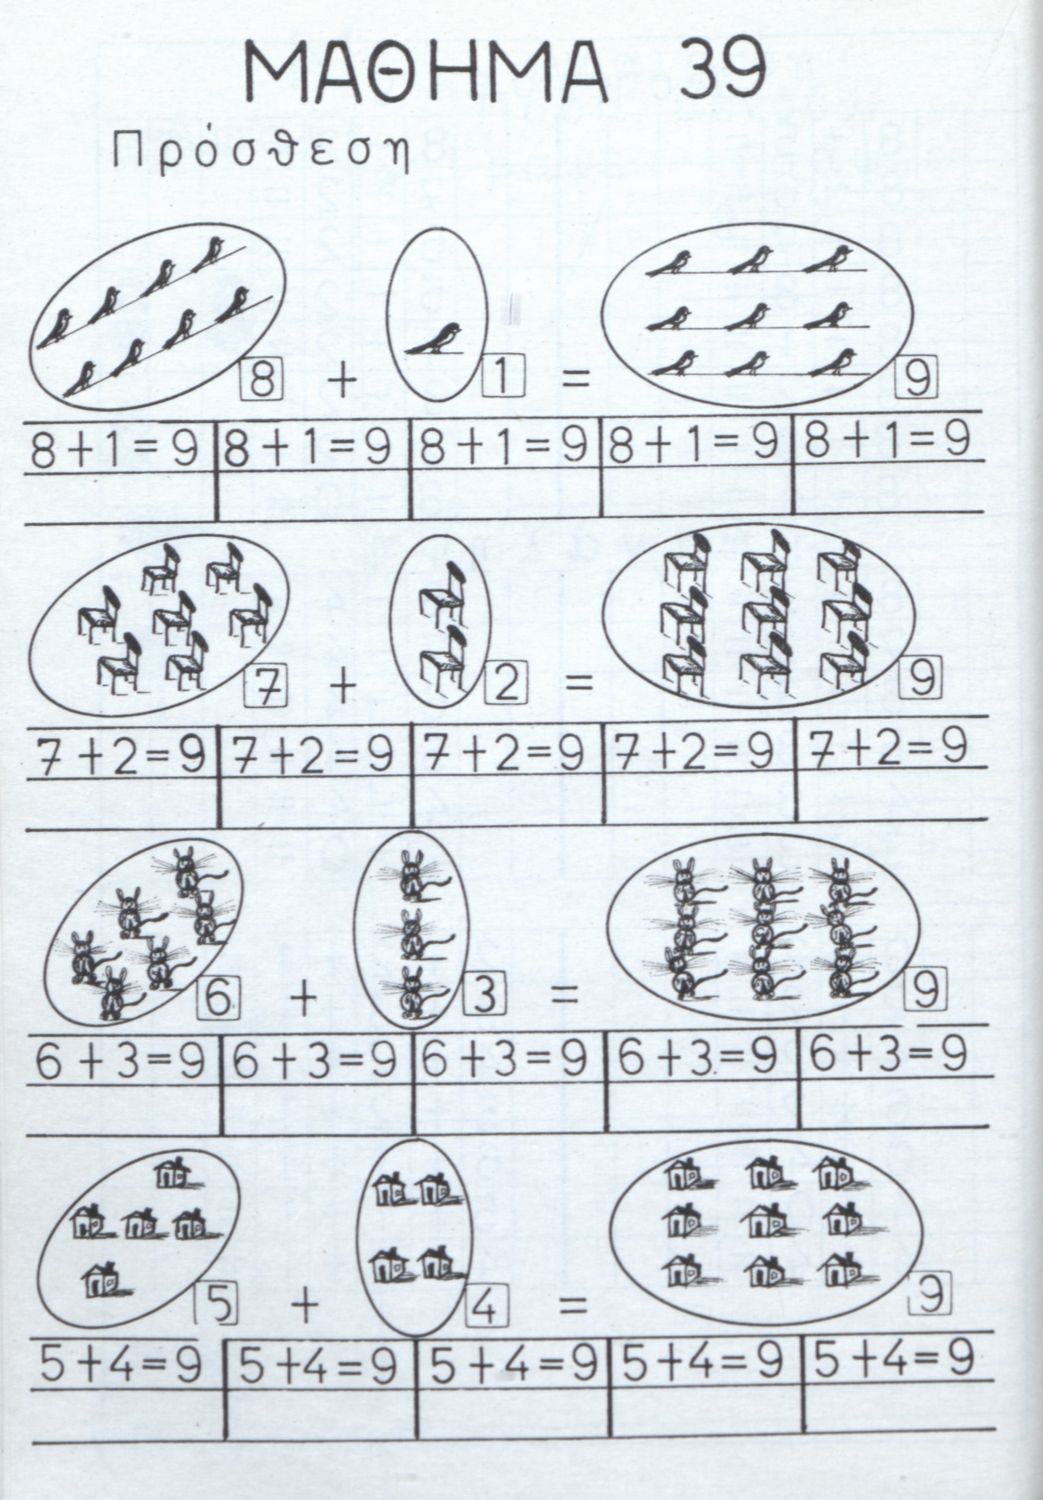 ΜΑΘΗΜΑ 39
Πρόσθεση
8 + 1 = 9
8+1=9 8+1=9 8+1=9 8+1=9 8+1=9
7 + 2 = 9
7+2=9 7+2=9 7+2=9 7+2=9 7+2=9
6 + 3 = 9
6+3=9 6+3=9 6+3=9 6+3=9 6+3=9
5 + 4 = 9
5+4=9 5+4=9 5+4=9 5+4=9 5+4=9